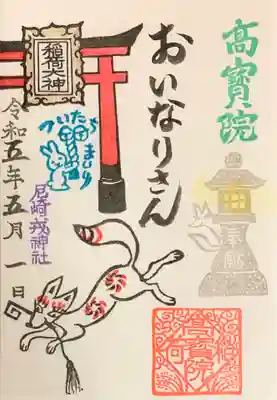 高寳院
おいなりさん
稲荷大神
ついたちまいり
尼崎戎神社
令和五年五月一日
奉献
高寳院